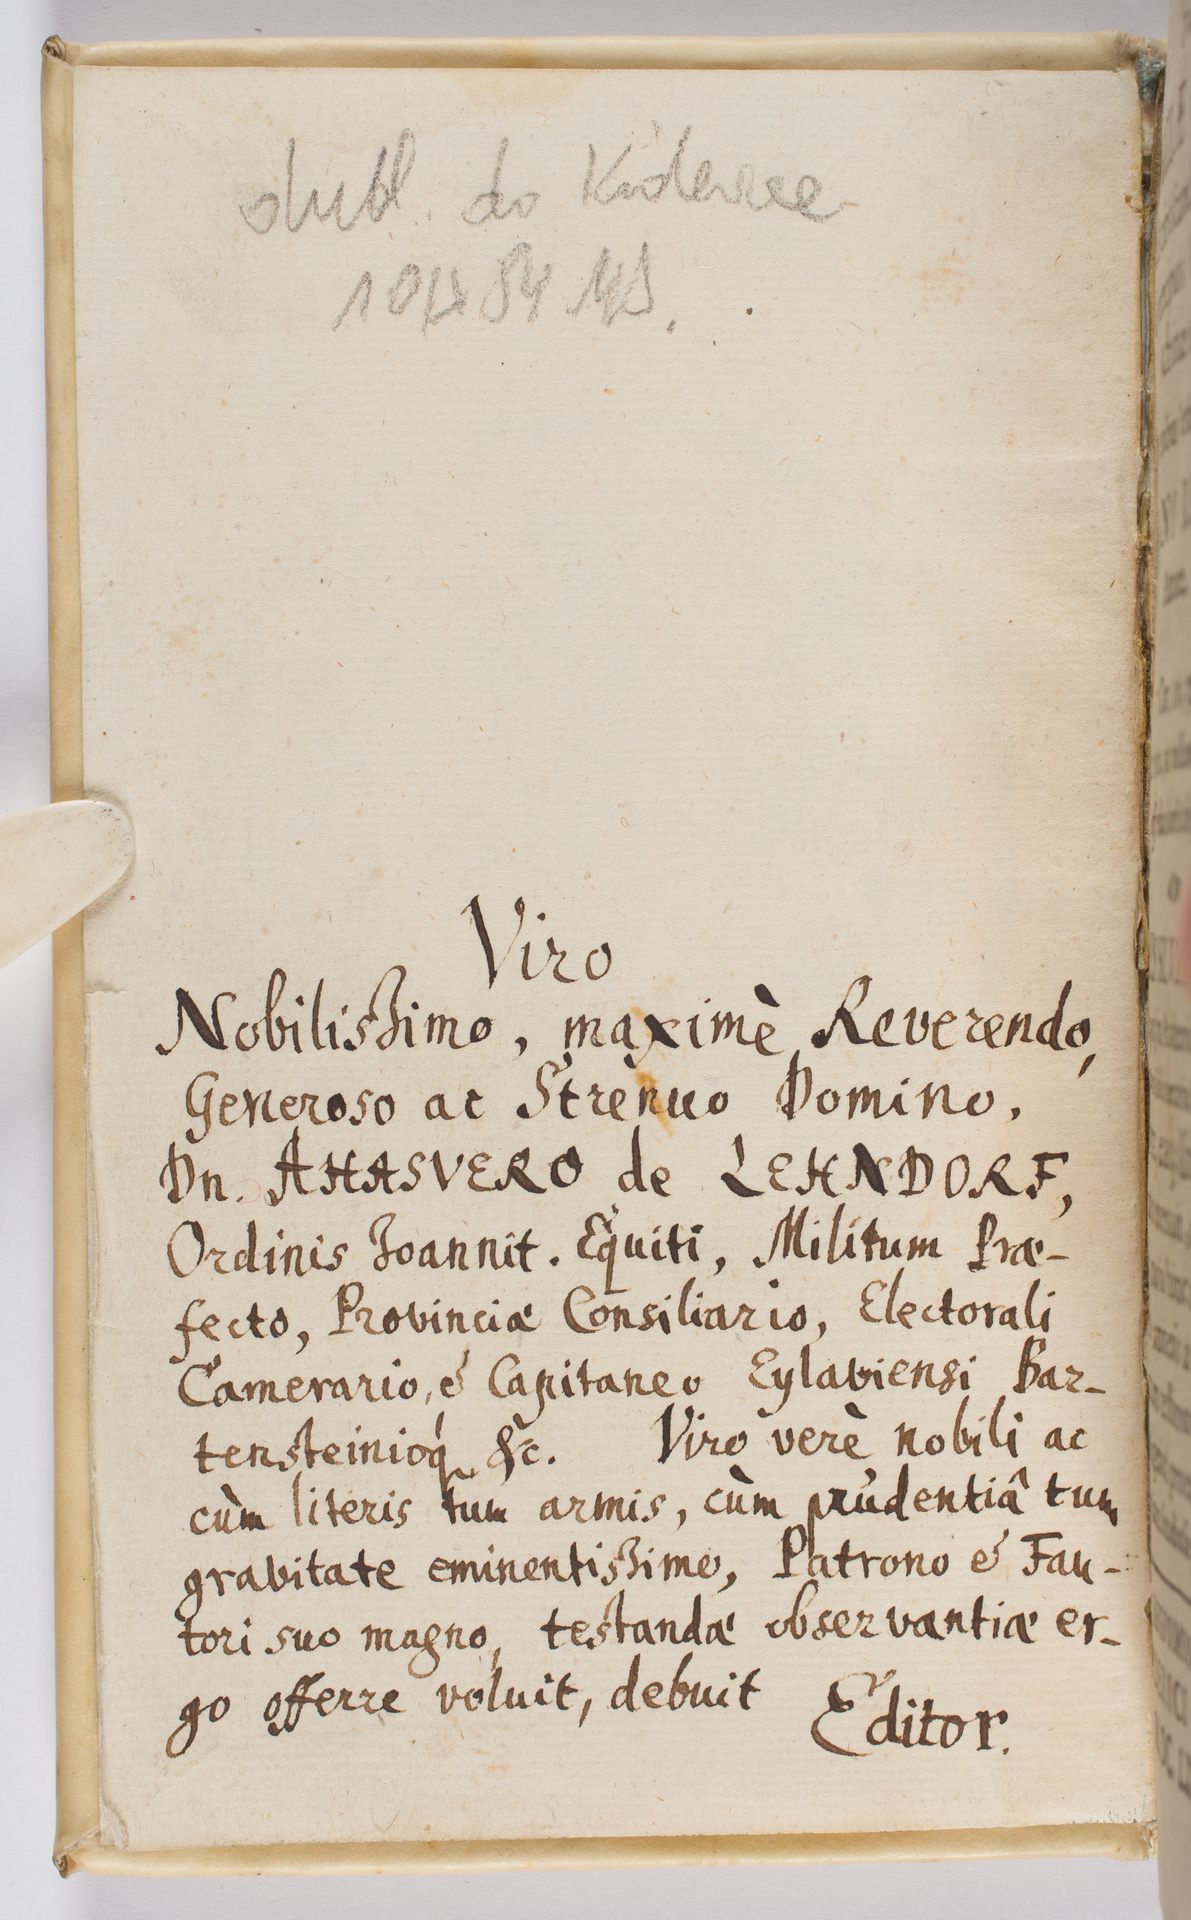 dubl. do
Viro
Nobilissimo, maximè Reverendo,
Generoso ac Strenuo Domino,
Dn. AHASVERO de LEHNDORF,
Ordinis Joannit. Equiti, Militum Præ-
fecto, Provinciæ Consiliario, Electorali
Camerario, & Capitaneo Eylaviensi Bar-
tensteinioq́ &c. Viro verè nobili ac
cùm literis tum armis, cùm prudentiâ tum
gravitate eminentissimo, Patrono & Fau-
tori suo magno, testandæ observantiæ er-
go offerre voluit, debuit
Editor.